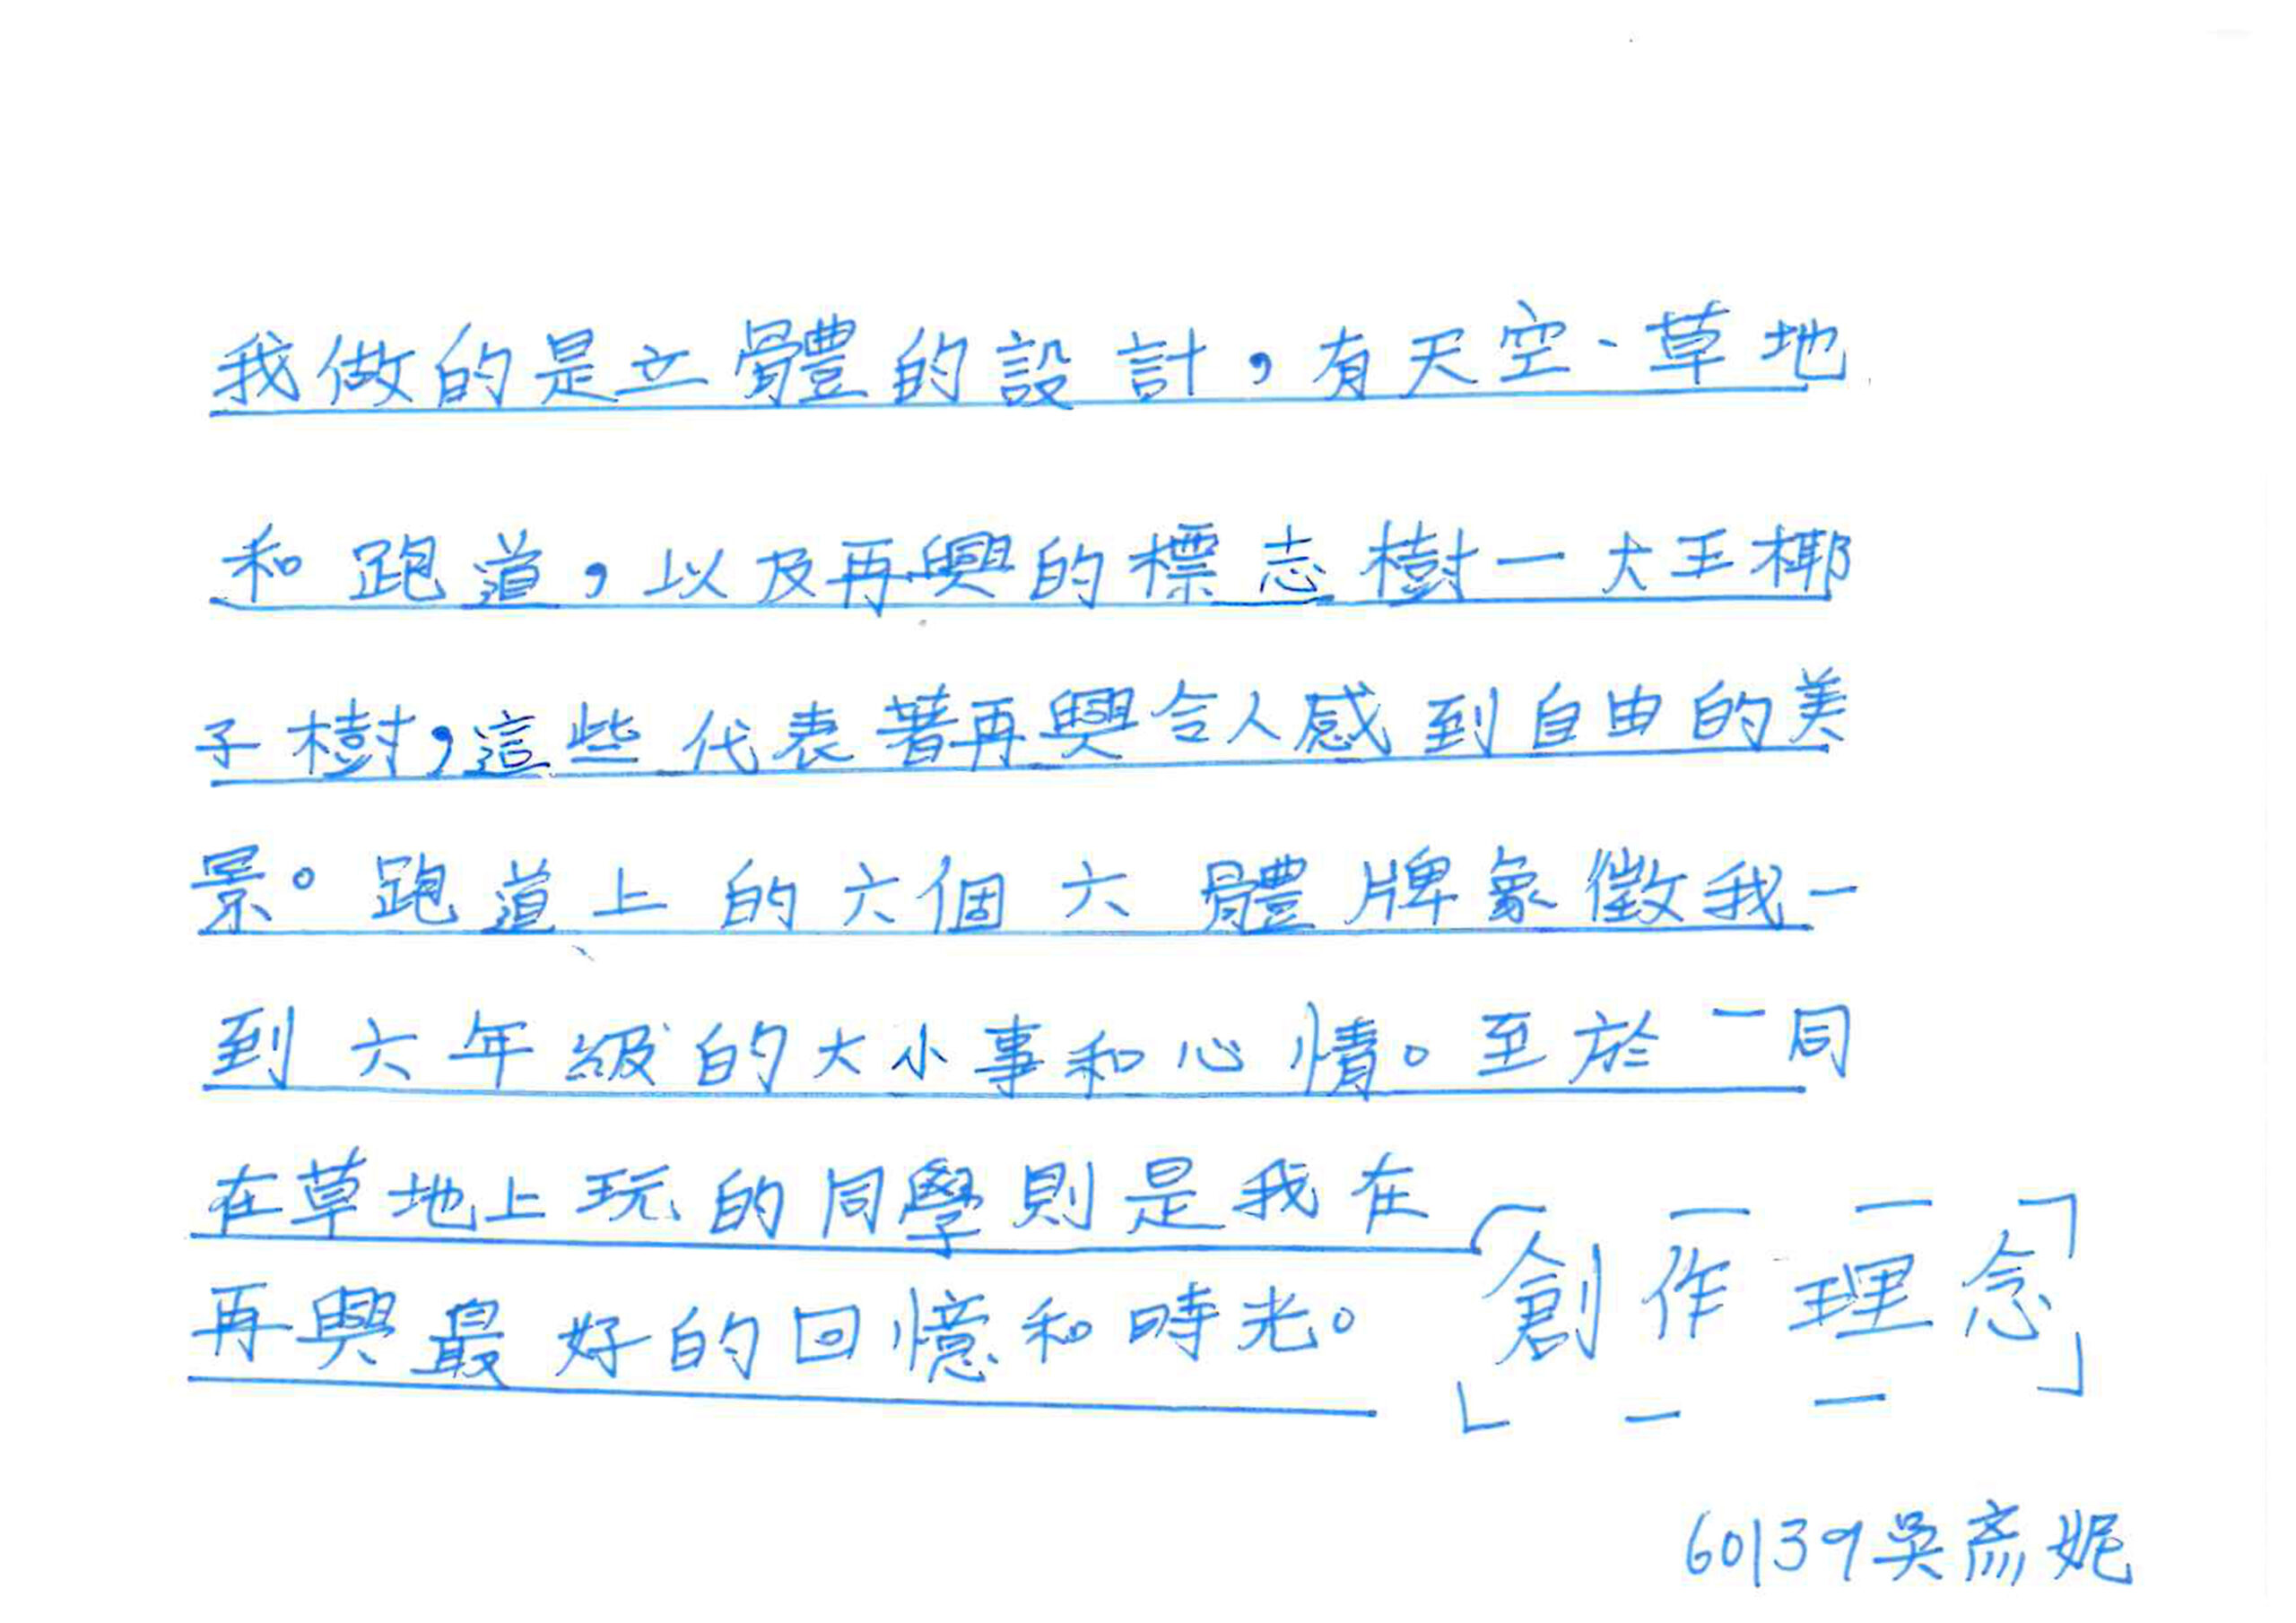 我做的是立體的設計，有天空、草地
和跑道，以及再興的標志樹—大王椰
子樹，這些代表著再興令人感到自由的美
景。跑道上的六個六體牌象徵我一
到六年級的大小事和心情。至於一同
在草地上玩的同學則是我在
再興最好的回憶和時光。
創作理念
60139吳彥妮